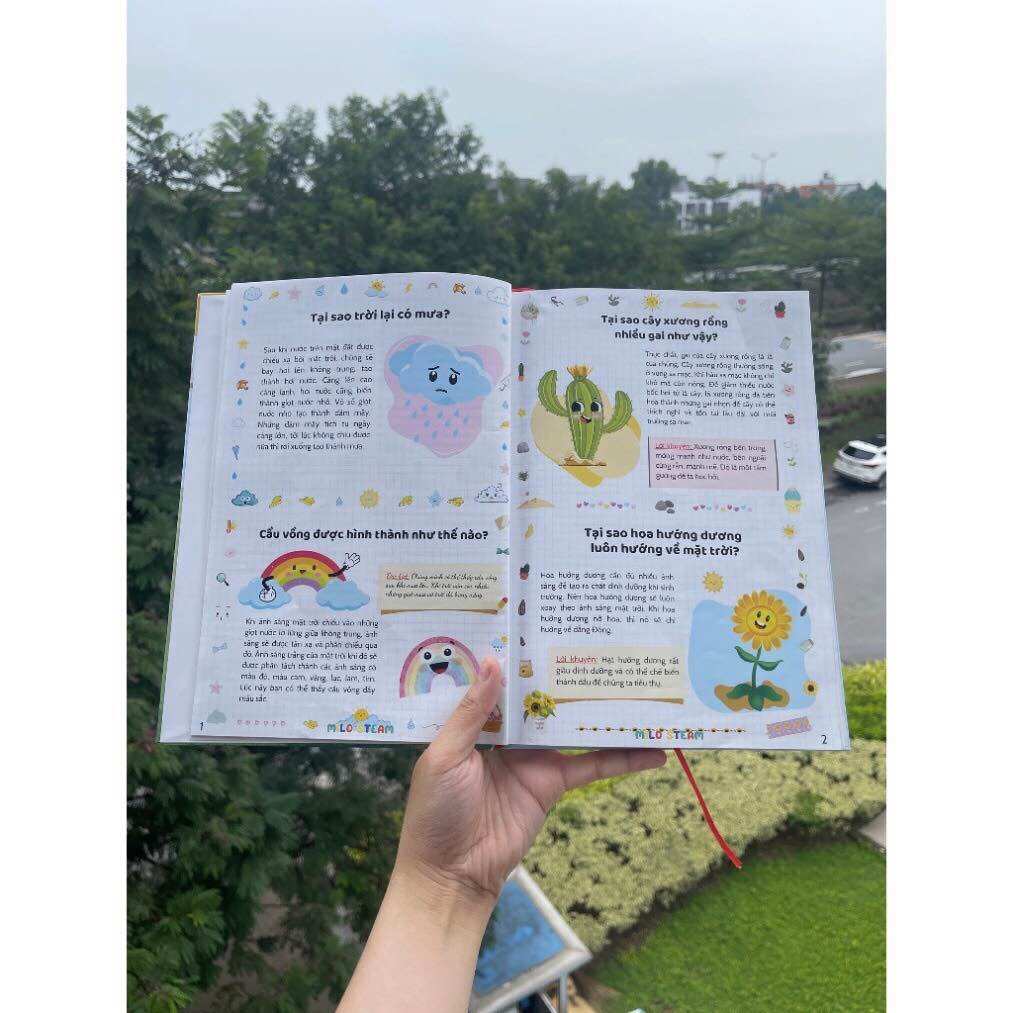 Tại sao trời lại có mưa?
Sau khi nước trên mặt đất được
chiếu xạ bởi mặt trời, chúng sẽ
bay hơi lên không trung, tạo
thành hơi nước. Càng lên cao
càng lạnh, hơi nước cũng biến
thành giọt nước nhỏ. Vô số giọt
nước nhỏ tạo thành đám mây.
Những đám mây tích tụ ngày
càng lớn, tới lúc không chịu được
nữa thì rơi xuống tạo thành mưa.
Cầu vồng được hình thành như thế nào?
Khi ánh sáng mặt trời chiếu vào những
giọt nước lơ lửng giữa không trung, ánh
sáng sẽ được tán xạ và phản chiếu qua
đó. Ánh sáng trắng của mặt trời khi đó sẽ
được phân tách thành các ánh sáng có
màu đỏ, màu cam, vàng, lục, lam, tím.
Lúc này bạn có thể thấy cầu vồng đầy
màu sắc.
1
MILO STEAM
Tại sao cây xương rồng
nhiều gai như vậy?
Thực chất, gai của cây xương rồng là lá
của chúng. Cây xương rồng thường sống
ở vùng sa mạc. Khí hậu sa mạc không chỉ
khô mà còn nóng. Để giảm thiểu nước
bốc hơi từ lá cây, lá xương rồng đã tiến
hóa thành những gai nhọn để cây có thể
thích nghi và tồn tại lâu dài với môi
trường sa mạc.
Lời khuyên: Xương rồng bên trong
mỏng manh như nước, bên ngoài
cứng rắn, mạnh mẽ. Đó là một tấm
gương để ta học hỏi.
Tại sao hoa hướng dương
luôn hướng về mặt trời?
Hoa hướng dương cần đủ nhiều ánh
sáng để tạo ra chất dinh dưỡng khi sinh
trưởng. Nên hoa hướng dương sẽ luôn
xoay theo ánh sáng mặt trời. Khi hoa
hướng dương nở hoa, thì nó sẽ chỉ
hướng về đằng Đông.
Lời khuyên: Hạt hướng dương rất
giàu dinh dưỡng và có thể chế biến
thành dầu để chúng ta tiêu thụ.
MILO STEAM
2